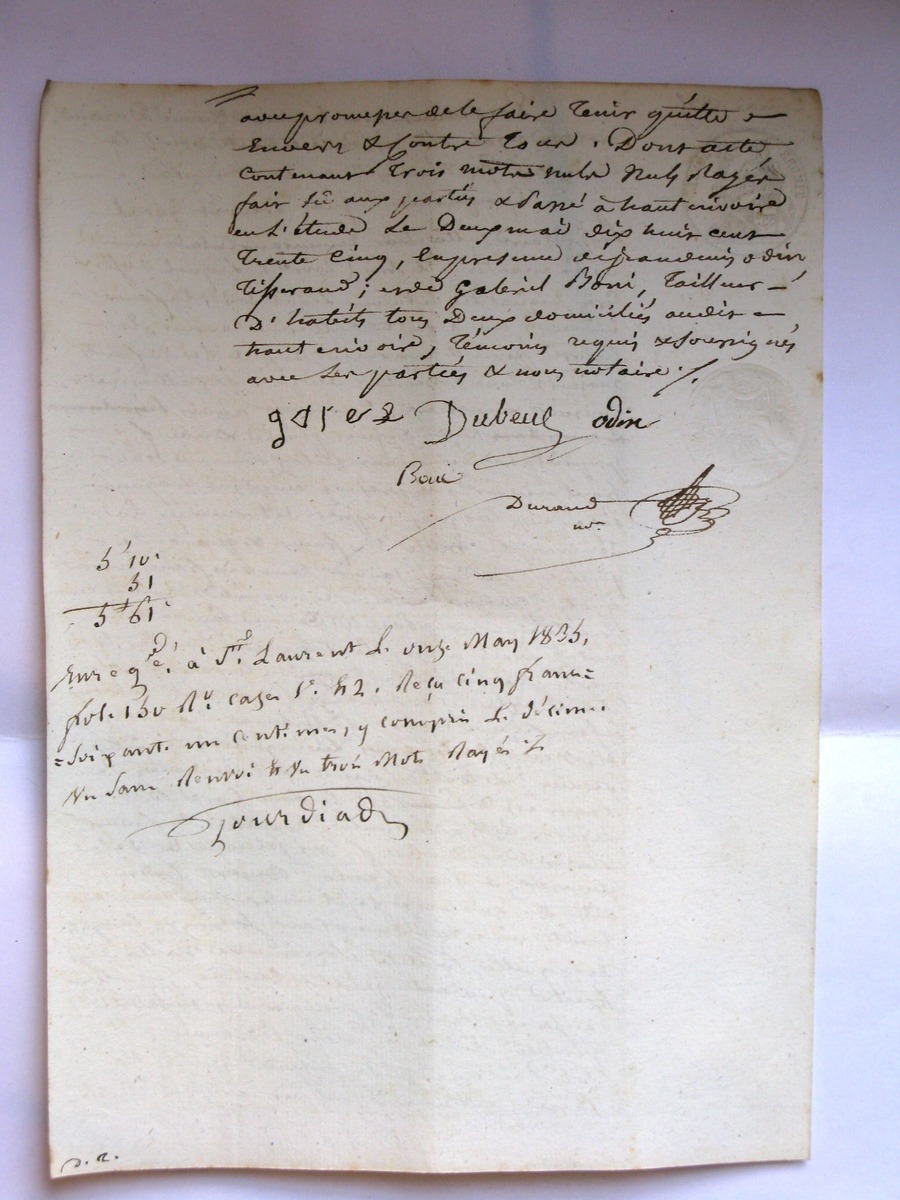 avec promesse de le faire tenir quitte
Envers & Contre tous. Dont acte
contenant trois mots nuls rayés
fait lû aux parties & passé à hautrivoire
en l'étude Le Deux mai dix huit cent
trente Cinq, En présence de jeandenis odin
tisserand; et de Gabriel Boni, Tailleur
D'habits tous Deux domiciliés audit
hautrivoire, témoins requis & soussignés
avec les parties & nous notaire ./.
Dubeuf odin
Durand
nre.
5f 10.
51
5f 61
Enregtré. à St. Laurent le onze May 1835,
fol. 130 Ro. cases 1e. & 2. Reçu cinq francs
soixante un centimes, y compris le décime.
Un sans Renvoi & Un trois Mots Rayés
Gourdiad
D. R.